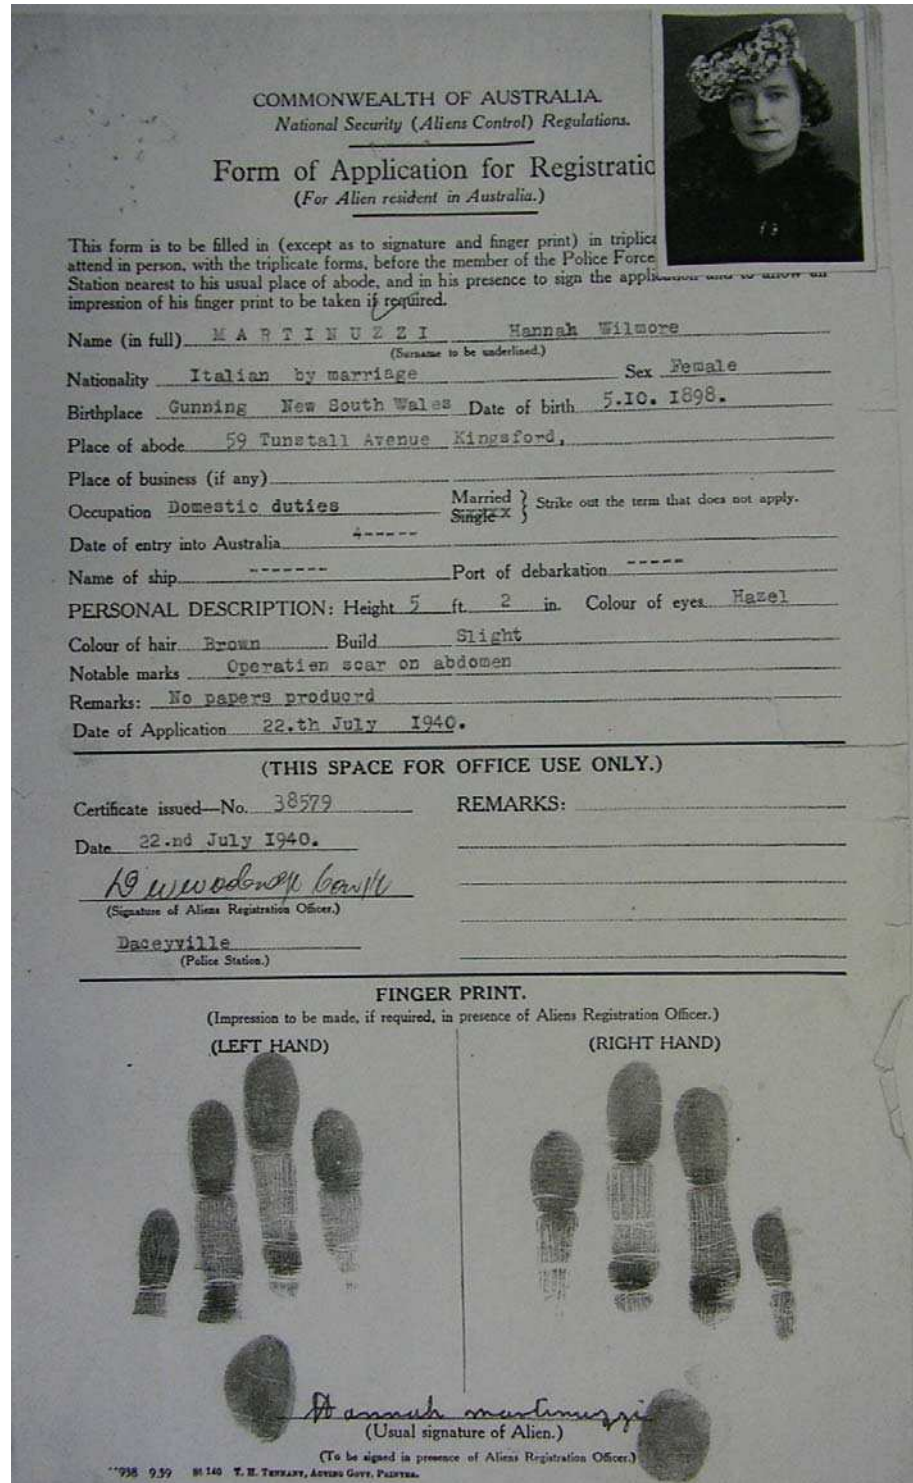 COMMONWEALTH OF AUSTRALIA.
National Security (Aliens Control) Regulations.
Form of Application for Registratio
(For Alien resident in Australia.)
This form is to be filled in (except as to signature and finger print) in triplica
attend in person, with the triplicate forms, before the member of the Police Force
Station nearest to his usual place of abode, and in his presence to sign the application and to allow an
impression of his finger print to be taken if required.
Name (in full) MARTINUZZI Hannah Wilmore
(Surname to be underlined.)
Nationality Italian by marriage Sex Female
Birthplace Gunning New South Wales Date of birth 5.IO. I898.
Place of abode 59 Tunstall Avenue Kingsford,
Place of business (if any)
Occupation Domestic duties Married Single } Strike out the term that does not apply.
Date of entry into Australia -----
Name of ship ------- Port of debarkation -----
PERSONAL DESCRIPTION: Height 5 ft. 2 in. Colour of eyes Hazel
Colour of hair Brown Build Slight
Notable marks Operatien scar on abdomen
Remarks: No papers producrd
Date of Application 22.th July I940.
(THIS SPACE FOR OFFICE USE ONLY.)
Certificate issued—No. 38579 REMARKS:
Date 22.nd July I940.
(Signature of Aliens Registration Officer.)
Daceyville
(Police Station.)
FINGER PRINT.
(Impression to be made, if required, in presence of Aliens Registration Officer.)
(LEFT HAND) (RIGHT HAND)
Hannah martinuzzi
(Usual signature of Alien.)
(To be signed in presence of Aliens Registration Officer.)
938 9.39 St 140 T. H. TENNANT, ACTING GOVT. PRINTER.